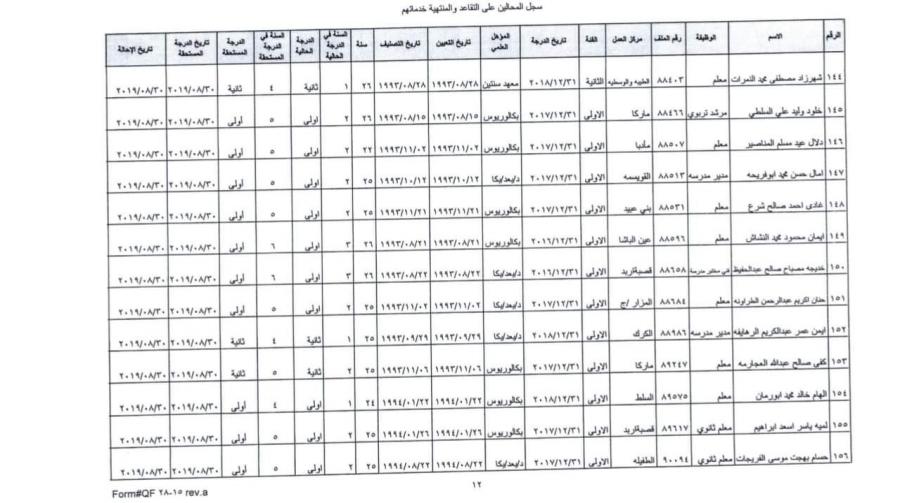 سجل المحالين على التقاعد والمنتهية خدماتهم
الرقم الاسم الوظيفة رقم الملف مركز العمل الفئة تاريخ الدرجة المؤهل العلمي تاريخ التعيين تاريخ التصنيف سنة السنة في الدرجة الحالية الدرجة الحالية السنة في الدرجة المستحقة الدرجة المستحقة تاريخ الدرجة المستحقة تاريخ الإحالة
١٤٤ شهرزاد مصطفى محمد النمرات معلم ٨٨٤٠٣ الطيبه والوسطيه الثانية ٢٠١٨/١٢/٣١ معهد سنتين ١٩٩٣/٠٨/٢٨ ١٩٩٣/٠٨/٢٨ ٢٦ ١ ثانية ٤ ثانية ٢٠١٩/٠٨/٣٠ ٢٠١٩/٠٨/٣٠
١٤٥ خلود وليد علي السلطي مرشد تربوي ٨٨٤٦٦ ماركا الاولى ٢٠١٧/١٢/٣١ بكالوريوس ١٩٩٣/٠٨/١٥ ١٩٩٣/٠٨/١٥ ٢٦ ٢ اولى ٥ أولى ٢٠١٩/٠٨/٣٠ ٢٠١٩/٠٨/٣٠
١٤٦ دلال عيد مسلم المناصير معلم ٨٨٥٠٧ مادبا الاولى ٢٠١٧/١٢/٣١ بكالوريوس ١٩٩٣/١١/٠٢ ١٩٩٣/١١/٠٢ ٢٢ ٢ اولى ٥ أولى ٢٠١٩/٠٨/٣٠ ٢٠١٩/٠٨/٣٠
١٤٧ امال حسن محمد ابوفريحه مدير مدرسه ٨٨٥١٣ القويسمه الاولى ٢٠١٧/١٢/٣١ د/بعد/بكا ١٩٩٣/١٠/١٢ ١٩٩٣/١٠/١٢ ٢٥ ٢ اولى ٥ أولى ٢٠١٩/٠٨/٣٠ ٢٠١٩/٠٨/٣٠
١٤٨ غادى احمد صالح شرع معلم ٨٨٥٣١ بني عبيد الاولى ٢٠١٧/١٢/٣١ بكالوريوس ١٩٩٣/١١/٢١ ١٩٩٣/١١/٢١ ٢٥ ٢ اولى ٥ أولى ٢٠١٩/٠٨/٣٠ ٢٠١٩/٠٨/٣٠
١٤٩ ايمان محمود محمد النشاش معلم ٨٨٥٩٦ عين الباشا الاولى ٢٠١٦/١٢/٣١ بكالوريوس ١٩٩٣/٠٨/٢١ ١٩٩٣/٠٨/٢١ ٢٦ ٣ اولى ٦ أولى ٢٠١٩/٠٨/٣٠ ٢٠١٩/٠٨/٣٠
١٥٠ خديجه مصباح صالح عبدالحفيظ مدرسة ٨٨٦٥٨ قصبةاربد الاولى ٢٠١٦/١٢/٣١ د/بعد/بكا ١٩٩٣/٠٨/٢٢ ١٩٩٣/٠٨/٢٢ ٢٦ ٣ اولى ٦ أولى ٢٠١٩/٠٨/٣٠ ٢٠١٩/٠٨/٣٠
١٥١ حنان اكريم عبدالرحمن الطراونه معلم ٨٨٦٨٤ المزار /ج الاولى ٢٠١٧/١٢/٣١ د/بعد/بكا ١٩٩٣/١١/٠٢ ١٩٩٣/١١/٠٢ ٢٥ ٢ اولى ٥ أولى ٢٠١٩/٠٨/٣٠ ٢٠١٩/٠٨/٣٠
١٥٢ ايمن عمر عبدالكريم الرهايفه مدير مدرسه ٨٨٩٨٦ الكرك الاولى ٢٠١٨/١٢/٣١ د/بعد/بكا ١٩٩٣/٠٩/٢٩ ١٩٩٣/٠٩/٢٩ ٢٥ ١ ثانية ٤ ثانية ٢٠١٩/٠٨/٣٠ ٢٠١٩/٠٨/٣٠
١٥٣ كفى صالح عبدالله العجارمه معلم ٨٩٢٤٧ ماركا الاولى ٢٠١٧/١٢/٣١ بكالوريوس ١٩٩٣/١١/٠٦ ١٩٩٣/١١/٠٦ ٢٥ ٢ ثانية ٥ ثانية ٢٠١٩/٠٨/٣٠ ٢٠١٩/٠٨/٣٠
١٥٤ الهام خالد محمد ابورمان معلم ٨٩٥٧٥ السلط الاولى ٢٠١٨/١٢/٣١ بكالوريوس ١٩٩٤/٠١/٢٢ ١٩٩٤/٠١/٢٢ ٢٤ ١ اولى ٤ أولى ٢٠١٩/٠٨/٣٠ ٢٠١٩/٠٨/٣٠
١٥٥ لميه ياسر اسعد ابراهيم معلم ثانوي ٨٩٦١٧ قصبةاربد الاولى ٢٠١٧/١٢/٣١ بكالوريوس ١٩٩٤/٠١/٢٦ ١٩٩٤/٠١/٢٦ ٢٥ ٢ اولى ٥ أولى ٢٠١٩/٠٨/٣٠ ٢٠١٩/٠٨/٣٠
١٥٦ حسام بهجت موسى الفريجات معلم ثانوي ٩٠٠٩٤ الطفيله الاولى ٢٠١٧/١٢/٣١ د/بعد/بكا ١٩٩٤/٠٨/٢٢ ١٩٩٤/٠٨/٢٢ ٢٥ ٢ اولى ٥ أولى ٢٠١٩/٠٨/٣٠ ٢٠١٩/٠٨/٣٠
١٢
Form#QF ٢٨-١٥ rev.a